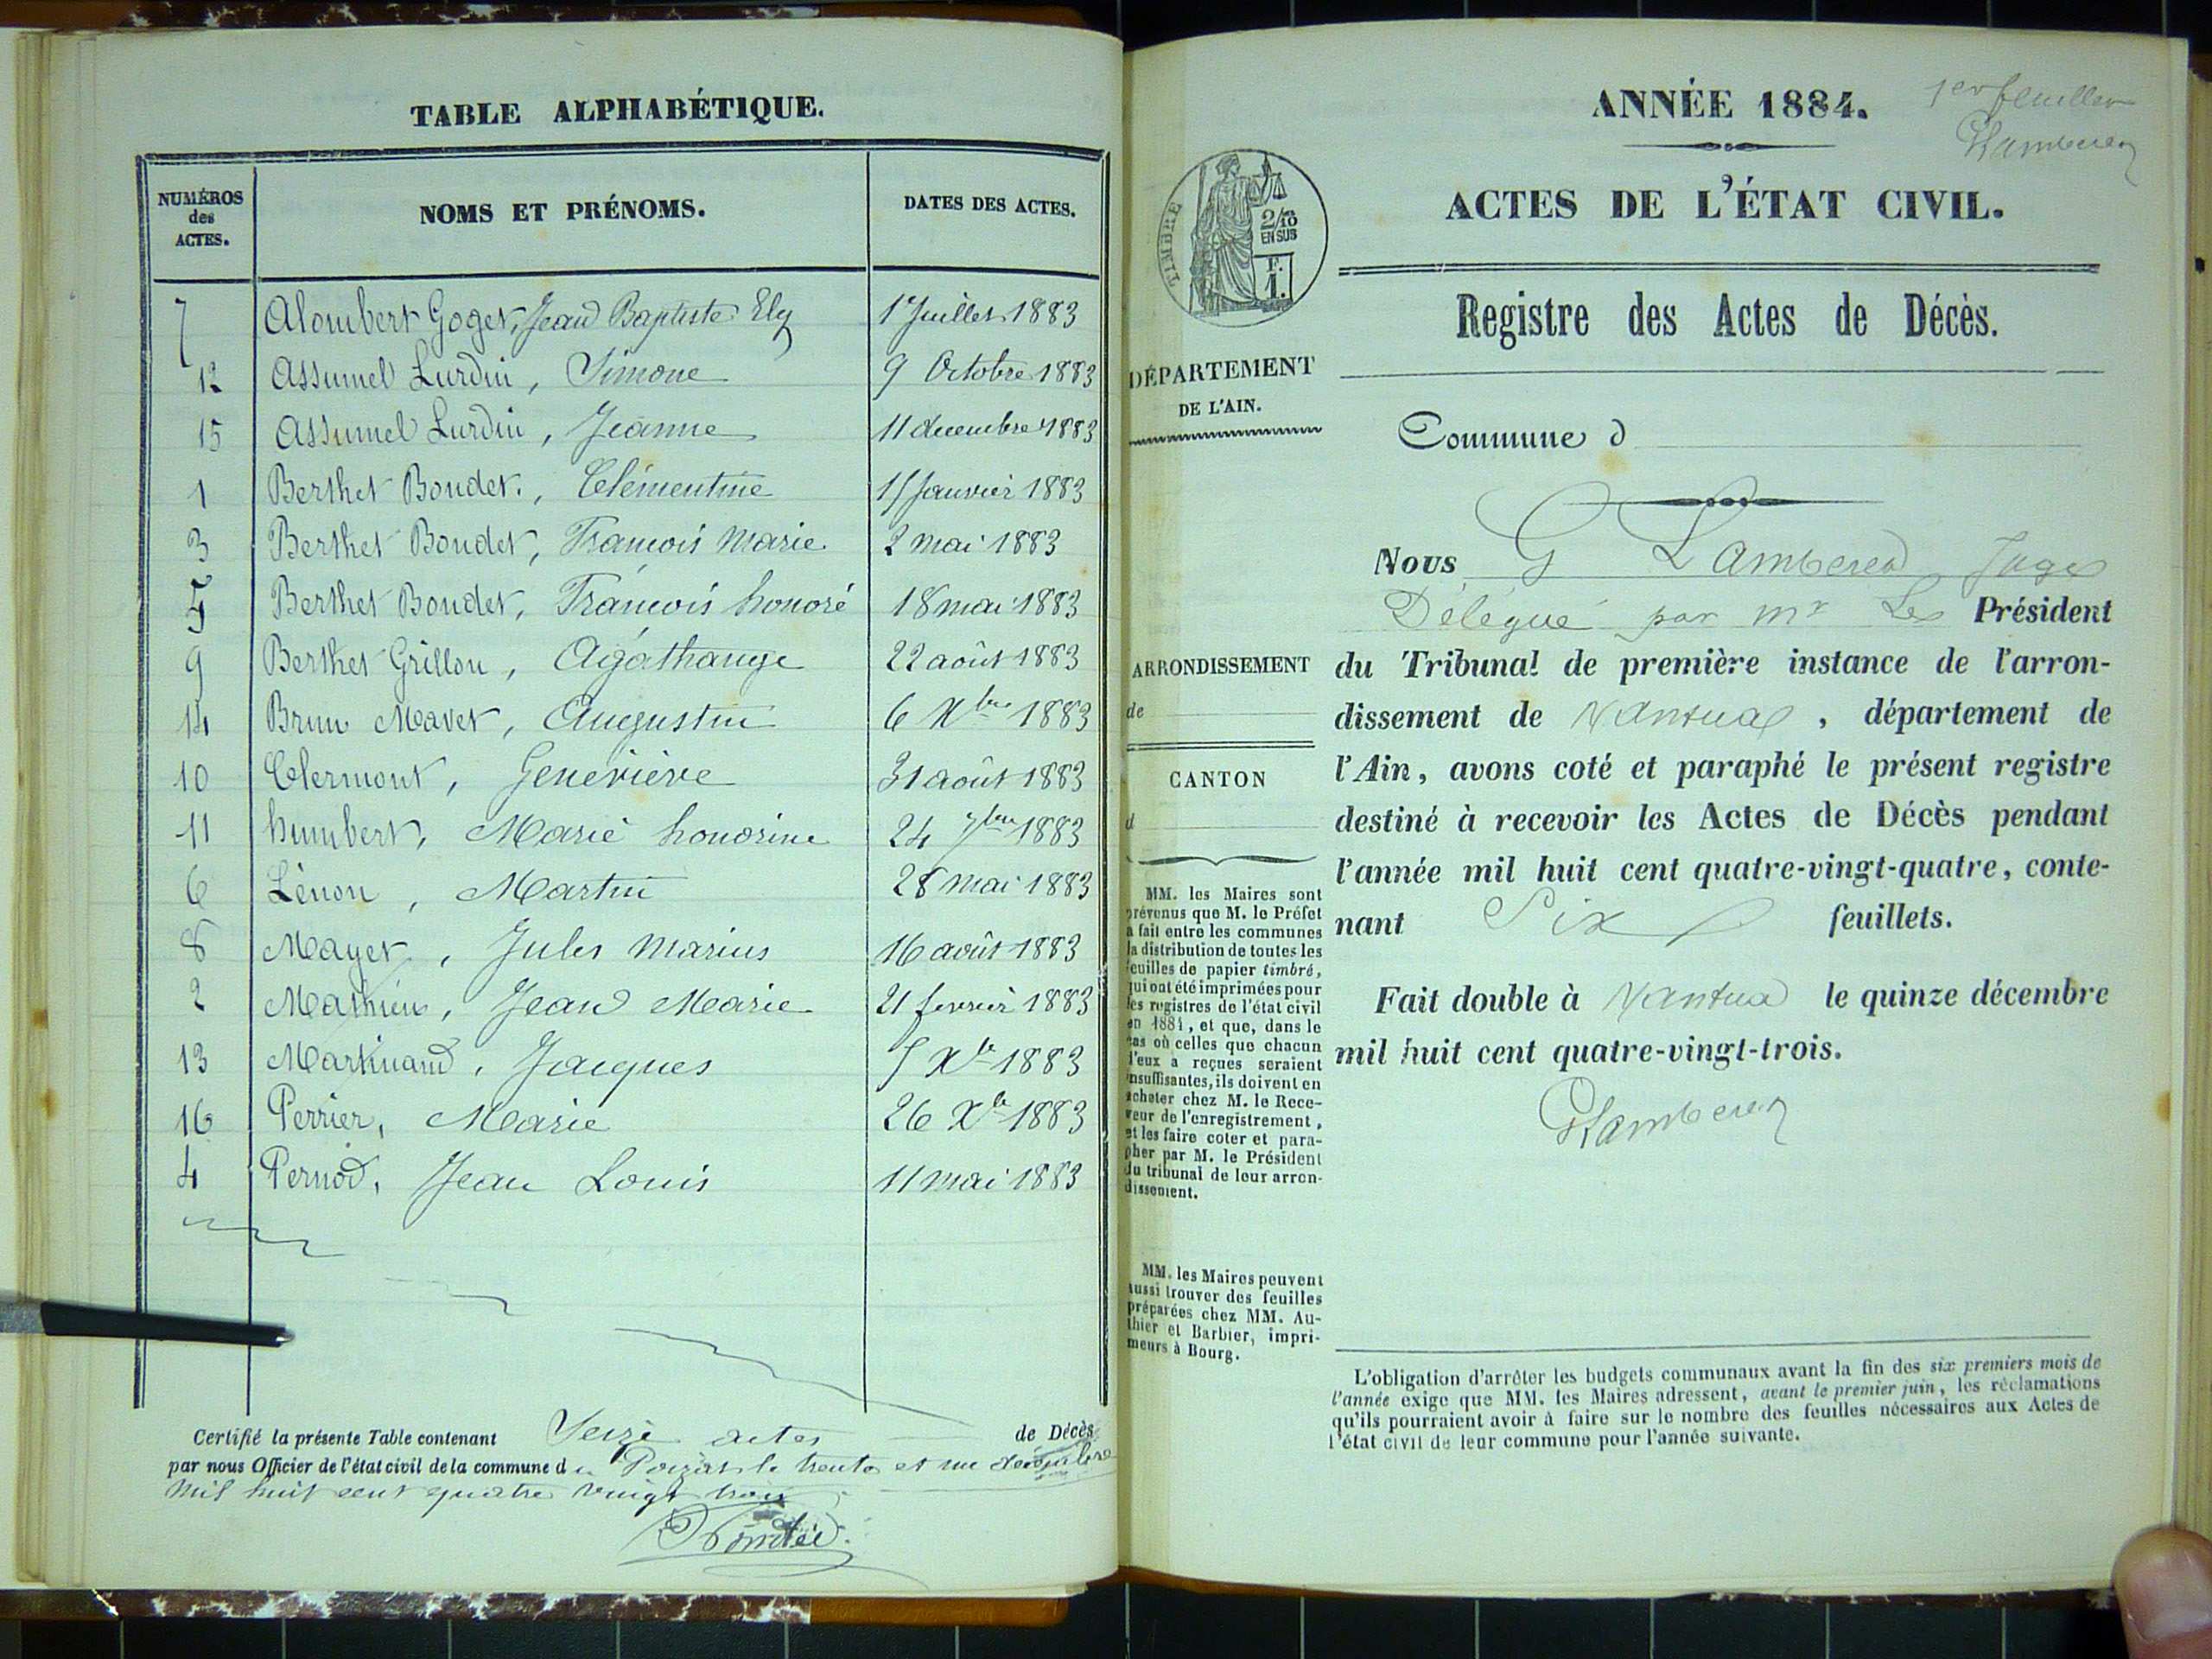 TABLE ALPHABÉTIQUE.
NUMÉROS des ACTES. NOMS ET PRÉNOMS. DATES DES ACTES.
7 Alombert Goget, Jean Baptiste Ely 1er Juillet 1883
12 Assumel Lurdin, Simone 9 Octobre 1883
15 Assumel Lurdin, Jeanne 11 decembre 1883
1 Berthet Bondet, Clémentine 15 Janvier 1883
3 Berthet Bondet, François Marie 2 mai 1883
5 Berthet Bondet, François honoré 18 mai 1883
9 Berthet Grillon, Agathange 22 août 1883
14 Brun Mavet, Augustin 6 Xbre 1883
10 Clermont, Geneviève 31 août 1883
11 humbert, Marie honorine 24 7bre 1883
6 Lénon, Martin 28 mai 1883
8 Mayet, Jules Marius 16 août 1883
2 Mathieu, Jean Marie 21 fevrier 1883
13 Martinand, Jacques 5 Xbre 1883
16 Perrier, Marie 26 Xbre 1883
4 Pernod, Jean Louis 11 mai 1883
Certifié la présente Table contenant Seize actes de Décès
par nous Officier de l'état civil de la commune du Poizat le trente et un decembre
mil huit cent quatre vingt trois
1er feuillet
ANNÉE 1884.
ACTES DE L'ÉTAT CIVIL.
TIMBRE
2/10
EN SUS
F.
1.
Registre des Actes de Décès.
DÉPARTEMENT
DE L'AIN.
Commune d
ARRONDISSEMENT
de
CANTON
d
MM. les Maires sont
prévenus que M. le Préfet
a fait entre les communes
la distribution de toutes les
feuilles de papier timbré,
qui ont été imprimées pour
les registres de l'état civil
en 1884, et que, dans le
cas où celles que chacun
d'eux a reçues seraient
insuffisantes, ils doivent en
acheter chez M. le Rece-
veur de l'enregistrement,
et les faire coter et para-
pher par M. le Président
du tribunal de leur arron-
dissement.
MM. les Maires peuvent
aussi trouver des feuilles
préparées chez MM. Au-
thier et Barbier, impri-
meurs à Bourg.
Nous G Lambered Juge
Délégué par Mr Le Président
du Tribunal de première instance de l'arron-
dissement de Nantua, département de
l'Ain, avons coté et paraphé le présent registre
destiné à recevoir les Actes de Décès pendant
l'année mil huit cent quatre-vingt-quatre, conte-
nant Six feuillets.
Fait double à Nantua le quinze décembre
mil huit cent quatre-vingt-trois.
L'obligation d'arrêter les budgets communaux avant la fin des six premiers mois de
l'année exige que MM. les Maires adressent, avant le premier juin, les réclamations
qu'ils pourraient avoir à faire sur le nombre des feuilles nécessaires aux Actes de
l'état civil de leur commune pour l'année suivante.